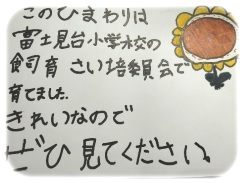 このひまわりは
富士見台小学校の
飼育 さい培委員会で
育てました。
きれいなので
ぜひ見てください。